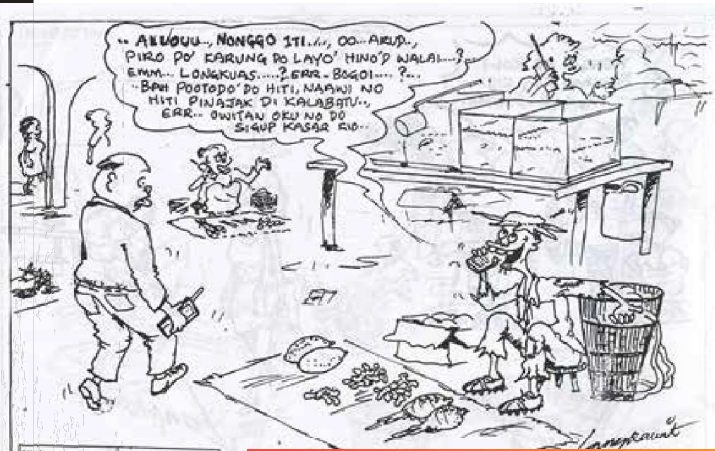 .. AKUOUU.., NONGGO ITI...., OO..ARUD..,
PIRO DO' KARUNG DO LAYO' HINO'D WALAI...?
EMM... LONGKUAS.....? ERR - BOGOI....?...
- BAH POOTODO' DO HITI, NAAWI NO
HITI PINAJAK DI KALABATU..,
ERR... OWITAN OKU NO DO
SIGUP KASAR KIO..